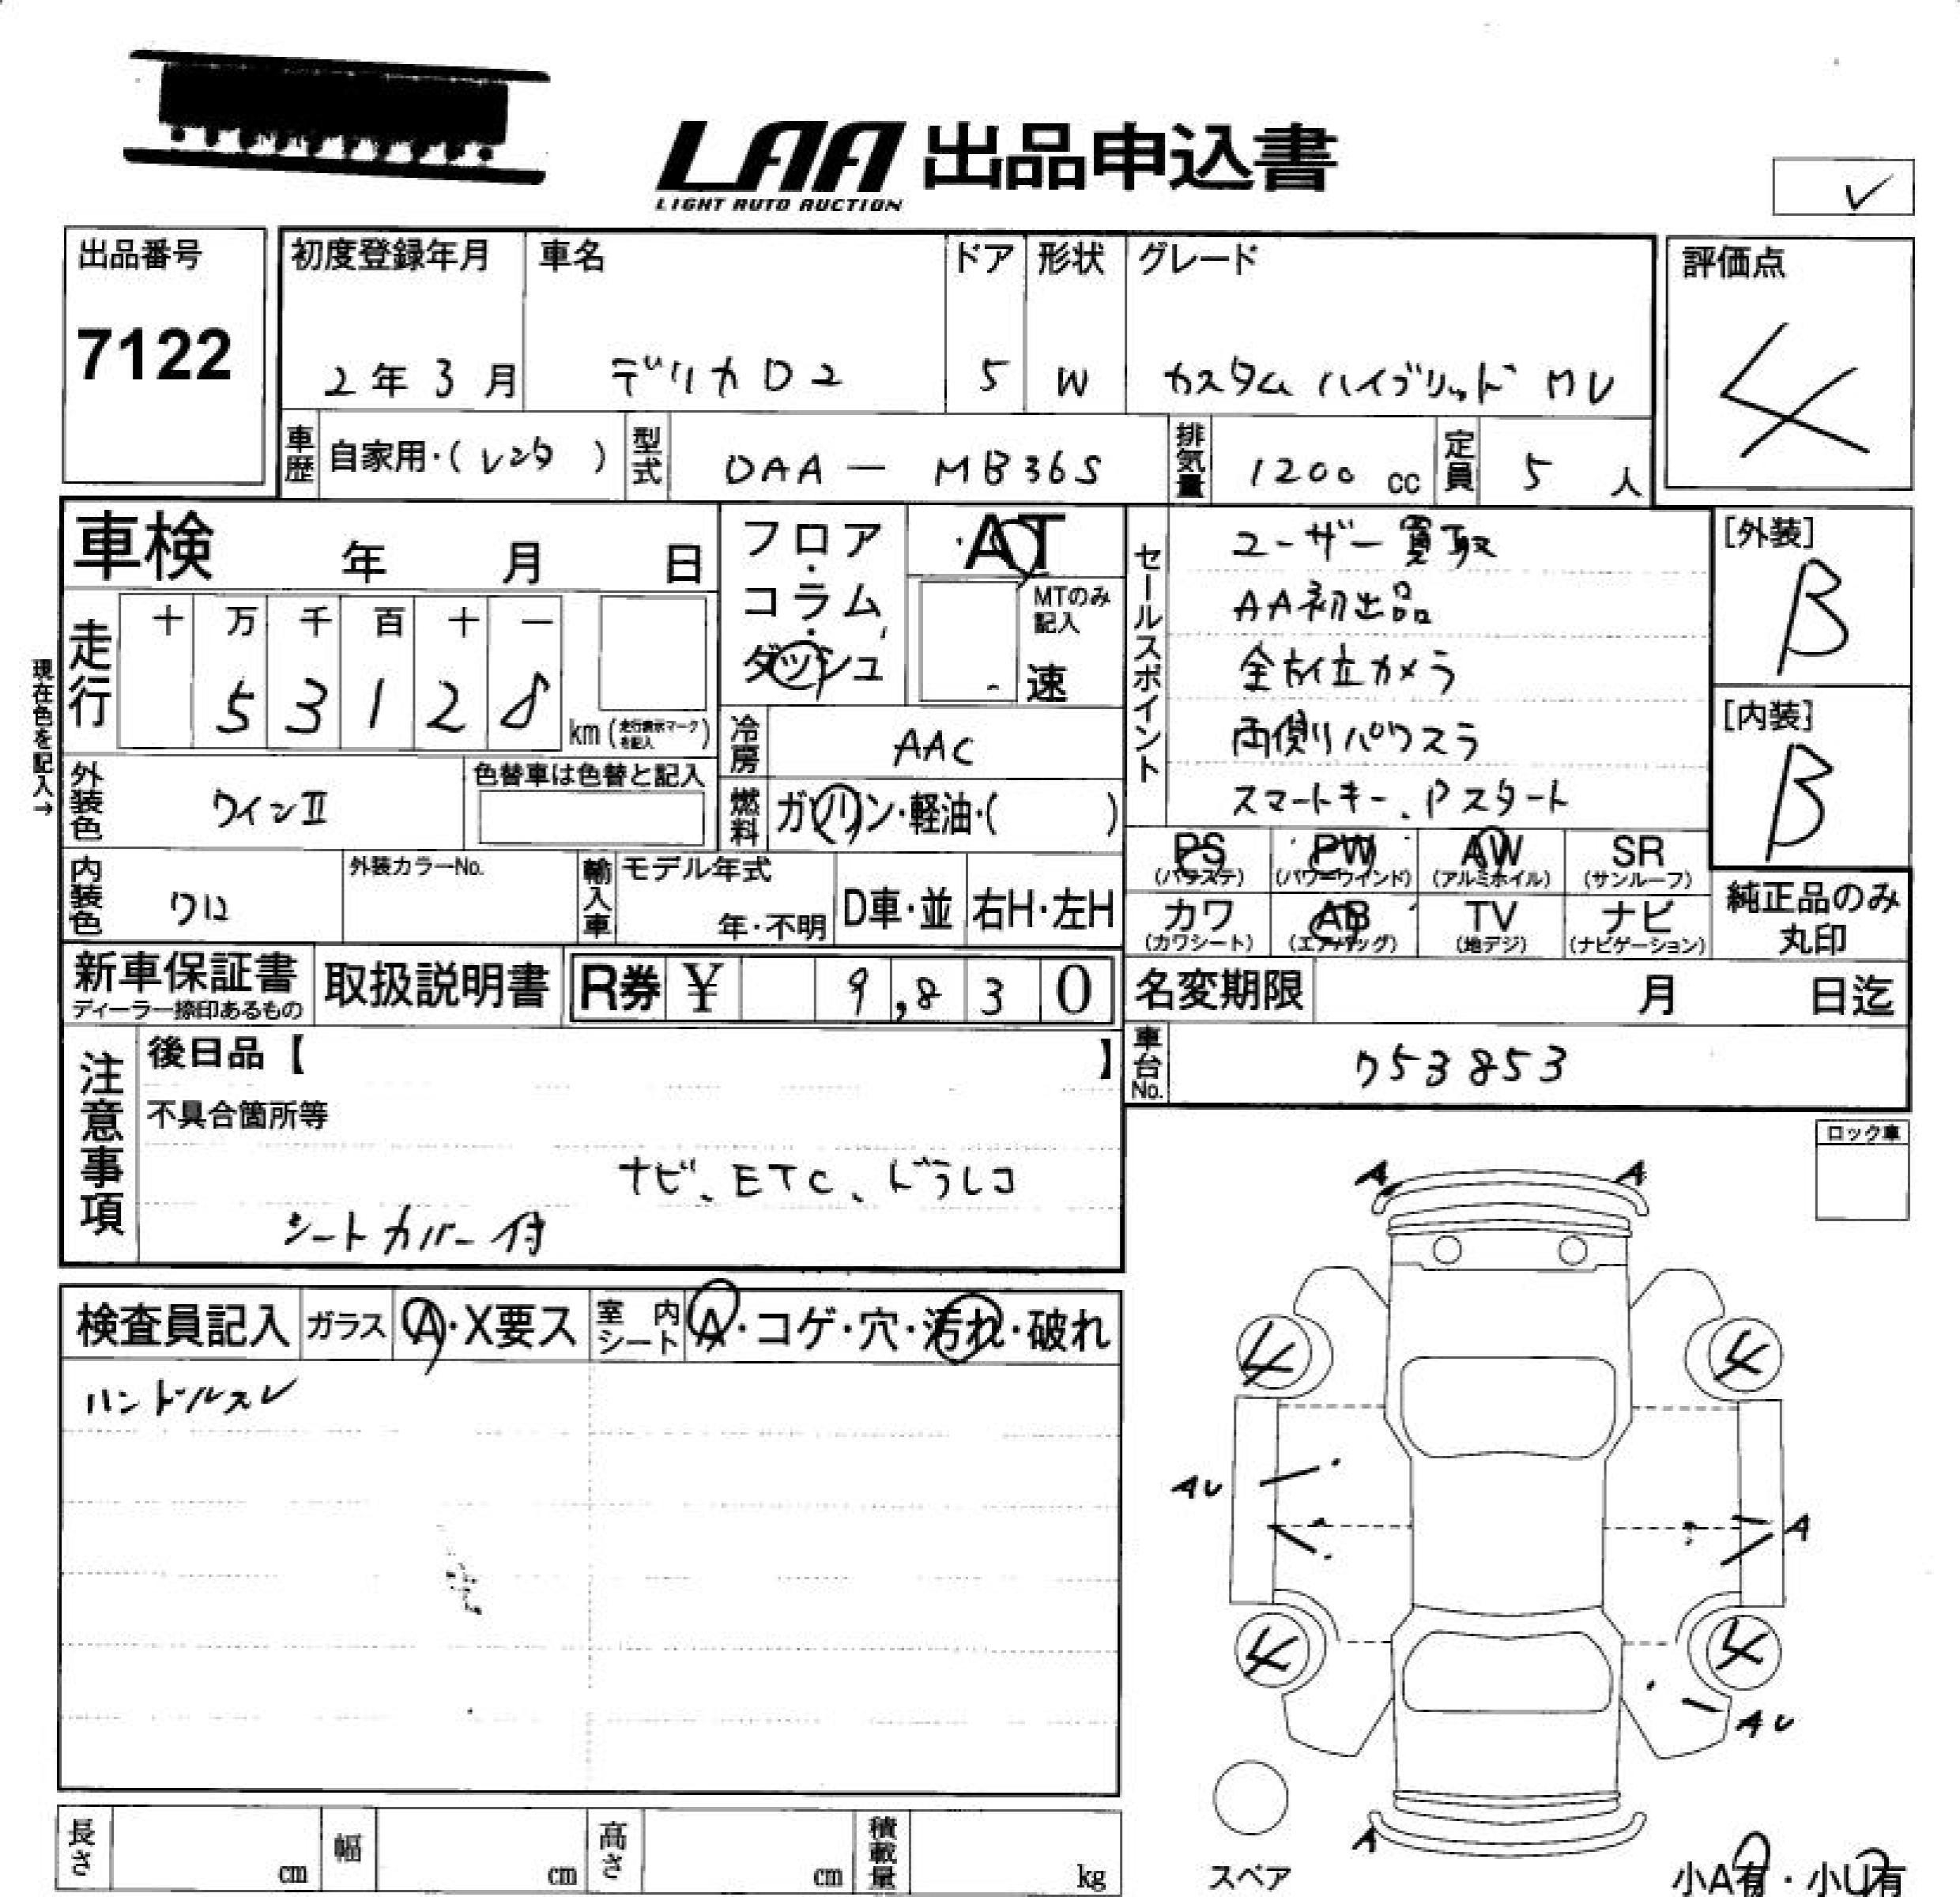 LAA 出品申込書
LIGHT AUTO AUCTION
出品番号
7122
初度登録年月
2年3月
車名
デリカD2
ドア
5
形状
W
グレード
カスタムハイブリッドMV
評価点
4
車歴
自家用・(レンタ)
型式
DAA-MB36S
排気量
1200cc
定員
5人
車検 年 月 日
現在色を記入→
走行
十 万 千 百 十 一
5 3 1 2 8
km(走行表示マークを記入)
フロア・コラム・ダッシュ
AT
MTのみ記入
速
冷房
AAC
燃料
ガソリン・軽油・( )
外装色
ワインII
色替車は色替と記入
内装色
クロ
外装カラーNo.
輸入車
モデル年式
年・不明
D車・並
右H・左H
新車保証書
ディーラー捺印あるもの
取扱説明書
R券 ¥ 9,830
セールスポイント
ユーザー買取
AA初出品
全方位カメラ
両側パワスラ
スマートキー、Pスタート
[外装]
B
[内装]
B
PS
(パワステ)
PW
(パワーウインド)
AW
(アルミホイル)
SR
(サンルーフ)
カワ
(カワシート)
AB
(エアバッグ)
TV
(地デジ)
ナビ
(ナビゲーション)
純正品のみ
丸印
名変期限 月 日迄
車台No.
753853
注意事項
後日品【 】
不具合箇所等
ナビ、ETC、ドラレコ
シートカバー付
ロック車
検査員記入
ガラス
A・X要ス
室内シート
A・コゲ・穴・汚れ・破れ
ハンドルスレ
A A
4 4
AU
A
4 4
AU
A
スペア
小A有・小U有
長さ cm
幅 cm
高さ cm
積載量 kg